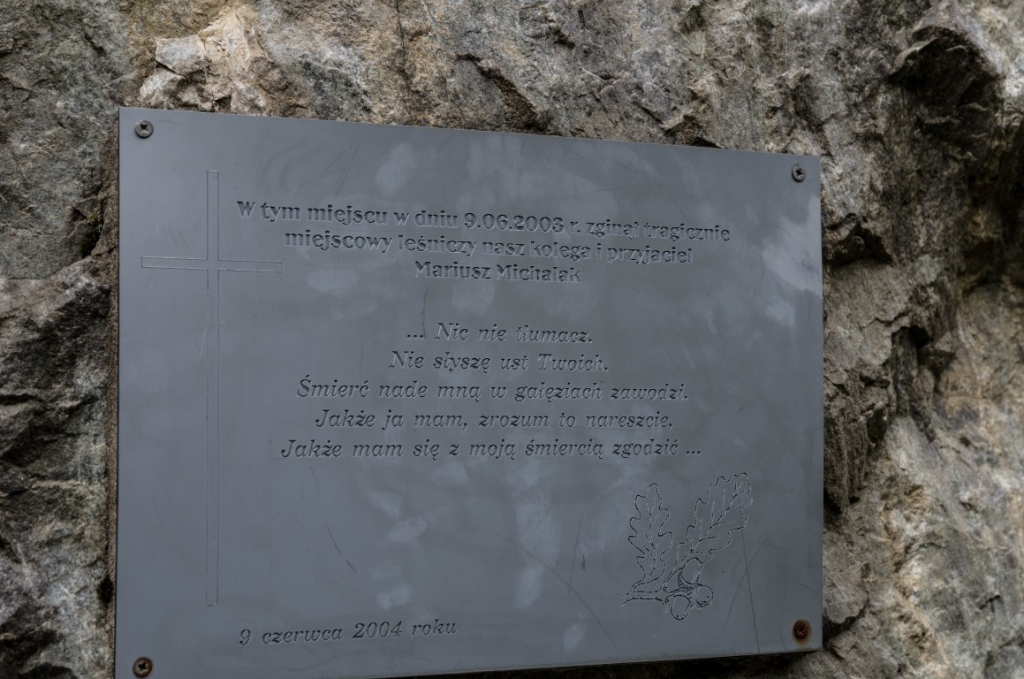 W tym miejscu w dniu 9.06.2003 r. zginął tragicznie
miejscowy leśniczy nasz kolega i przyjaciel
Mariusz Michalak
... Nic nie tłumacz.
Nie słyszę ust Twoich.
Śmierć nade mną w gałęziach zawodzi.
Jakże ja mam, zrozum to nareszcie,
Jakże mam się z moją śmiercią zgodzić ...
9 czerwca 2004 roku